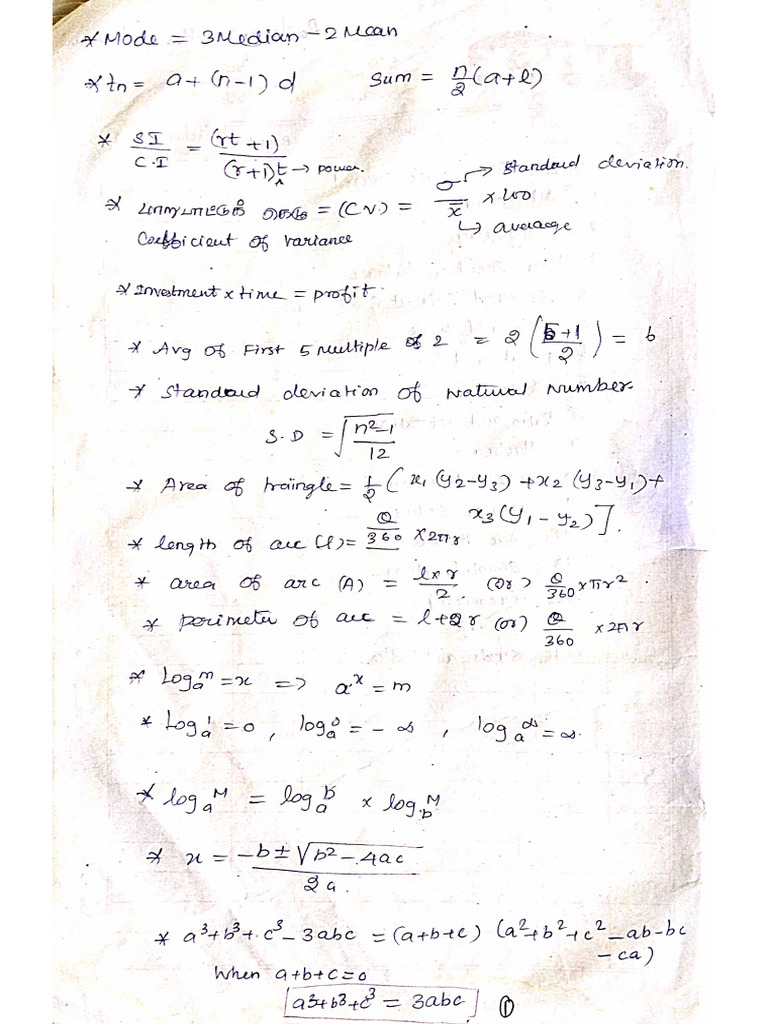 * Mode = 3Median - 2Mean
* tn = a + (n-1) d    Sum = n/2 (a+l)
* SI/C.I = (rt+1)/(r+1)t → power.
* மாறுபாட்டுக் கெழு = (CV.) = σ/x̄ × 100
σ → Standard deviation.
x̄ → average
Coefficient of variance
* Investment × time = profit.
* Avg of First 5 multiple of 2 = 2 (5+1/2) = 6
* Standard deviation of Natural Number
S.D = √n²-1/12
* Area of traingle = 1/2 ( x₁ (y₂-y₃) + x₂ (y₃-y₁) +
x₃ (y₁ - y₂)].
* length of arc (l) = θ/360 × 2πr
* area of arc (A) = l×r/2. (or) θ/360 × πr².
* perimeter of arc = l+2r (or) θ/360 × 2πr
* Logₐᵐ = x => aˣ = m
* Logₐ¹ = 0, logₐ⁰ = -∞, logₐ∞ = ∞.
* logₐᴹ = logₐᵇ × log_b ᴹ
* x = -b ± √b² - 4ac / 2a.
* a³+b³+c³-3abc = (a+b+c) (a²+b²+c²-ab-bc
-ca)
When a+b+c=0
a³+b³+c³ = 3abc ①